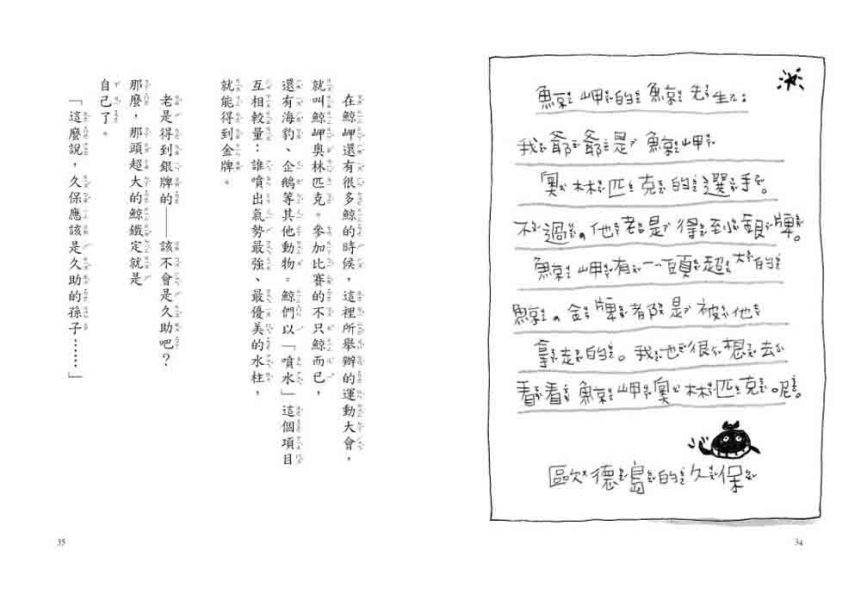 鯨岬的鯨先生：
我爺爺是鯨岬
奧林匹克的選手。
不過，他老是得到銀牌。
鯨岬有一頭超大的
鯨，金牌都是被他
拿走的。我也很想去
看看鯨岬奧林匹克呢。
歐德島的久保
34
在鯨岬還有很多鯨的時候，這裡所舉辦的運動大會，
就叫鯨岬奧林匹克。參加比賽的不只鯨而已，
還有海豹、企鵝等其他動物。鯨們以「噴水」這個項目
互相較量：誰噴出氣勢最強、最優美的水柱，
就能得到金牌。
老是得到銀牌的——該不會是久助吧？
那麼，那頭超大的鯨鐵定就是
自己了。
「這麼說，久保應該是久助的孫子……」
35